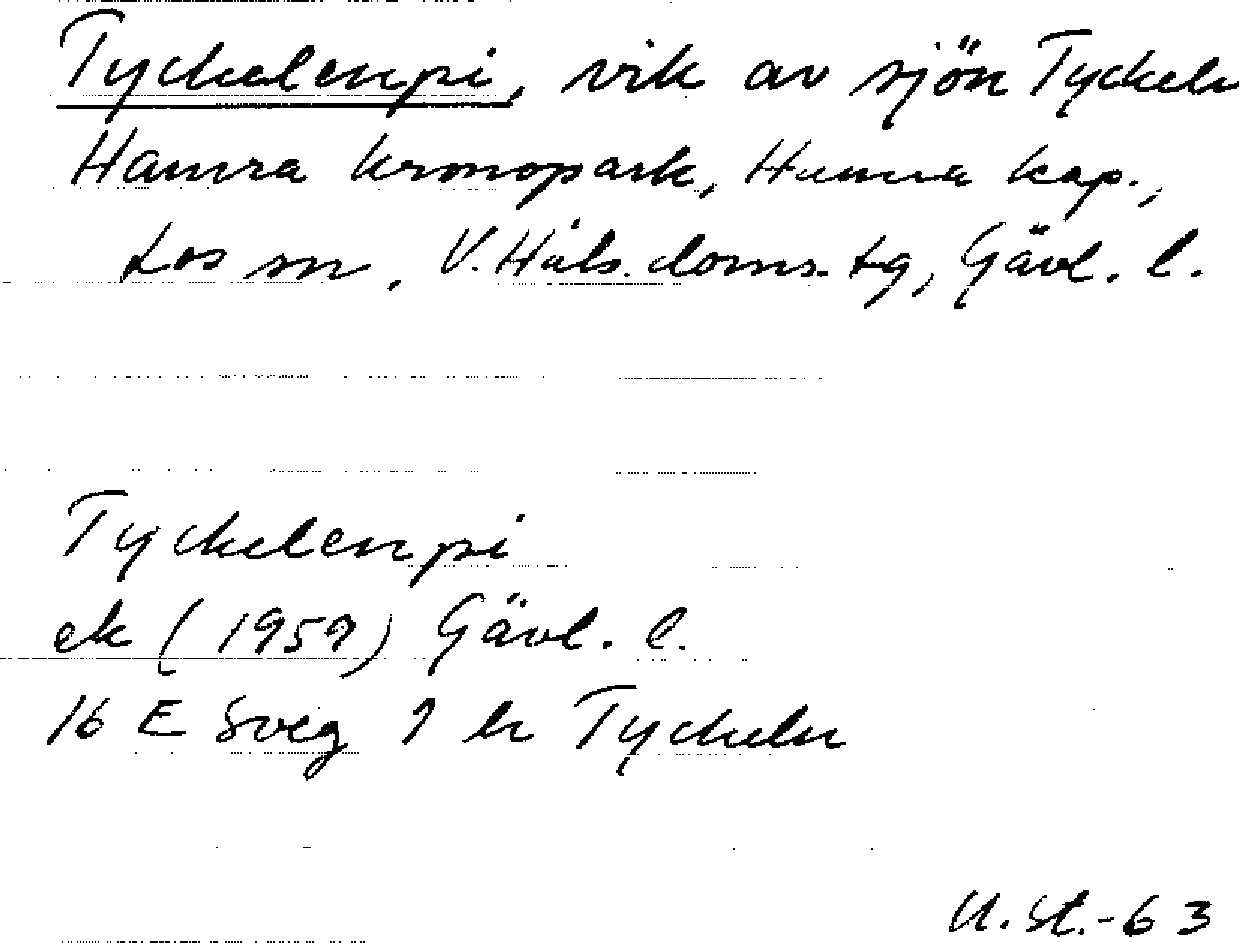 Tyckelenpi, vik av sjön Tyckeln
Hamra kronopark, Hamra kap.,
Los sn, V. Häls. doms. tg, Gävl. l.
Tyckelenpi
ek (1959) Gävl. l.
16 E Sveg 1 h Tyckeln
U. St.-63